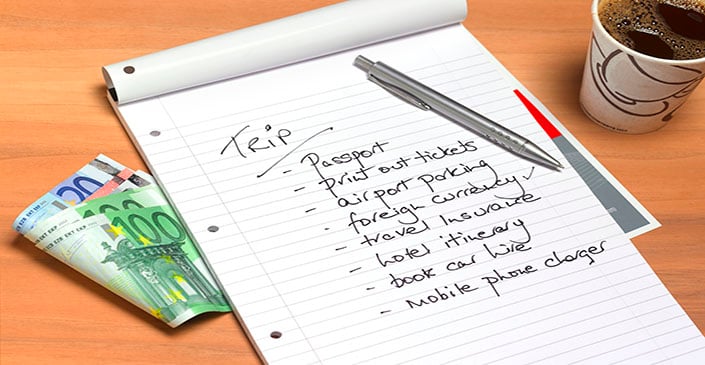 Trip
- Passport
- Print out tickets
- airport parking
- foreign currency ✓
- travel Insurance
- hotel itinerery
- book car hire
- Mobile phone charger
20
100
100